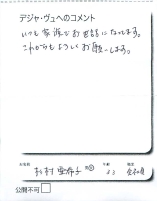 デジャ・ヴュへのコメント
いつも家族でお世話になってます。
これからもよろしくお願いします。
お名前
年齢
杉村 亜希子
33
公開不可